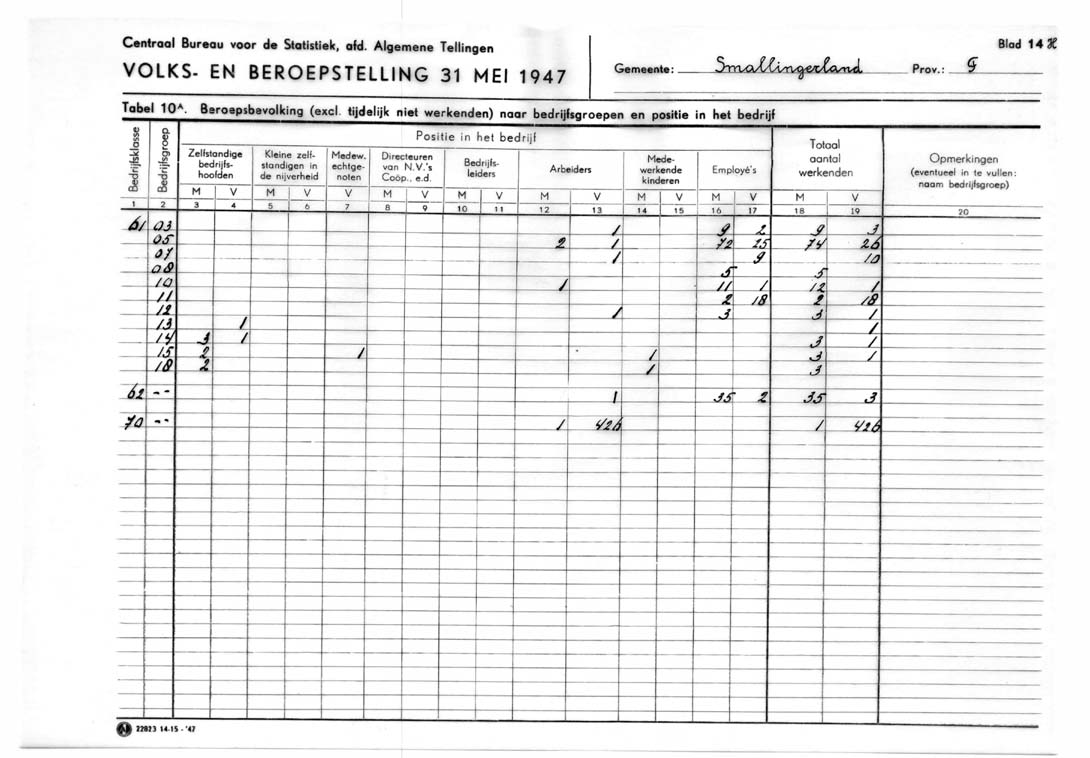 Centraal Bureau voor de Statistiek, afd. Algemene Tellingen
VOLKS- EN BEROEPSTELLING 31 MEI 1947
Gemeente: Smallingerland Prov.: F
Blad 14 H
Tabel 10A. Beroepsbevolking (excl. tijdelijk niet werkenden) naar bedrijfsgroepen en positie in het bedrijf
Bedrijfsklasse
Bedrijfsgroep
Positie in het bedrijf
Zelfstandige bedrijfs-hoofden
Kleine zelf-standigen in de nijverheid
Medew. echtge-noten
Directeuren van N.V.'s Coöp., e.d.
Bedrijfs-leiders
Arbeiders
Mede-werkende kinderen
Employé's
Totaal aantal werkenden
Opmerkingen (eventueel in te vullen: naam bedrijfsgroep)
M V M V V M V M V M V M V M V M V
1 2 3 4 5 6 7 8 9 10 11 12 13 14 15 16 17 18 19 20
61 03 1 9 2 9 3
05 2 1 72 25 74 26
07 1 9 10
08 5 5
10 1 11 1 12 1
11 2 18 2 18
12 1 3 3 1
13 1 1
14 3 1 3 1
15 2 1 1 3 1
18 2 1 3
62 -- 1 35 2 35 3
70 -- 1 426 1 426
22823 14-15 - '47